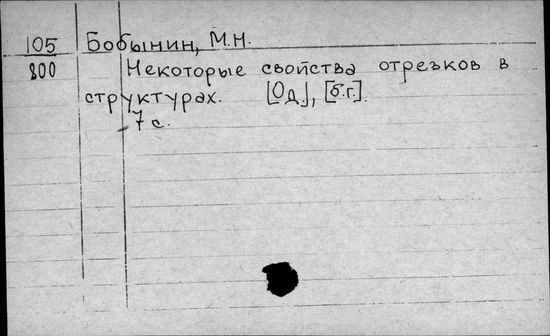 105 Бобынин, М.Н.
800 Некоторые свойства отрезков в
структурах. [Од], [б.г].
7 с.